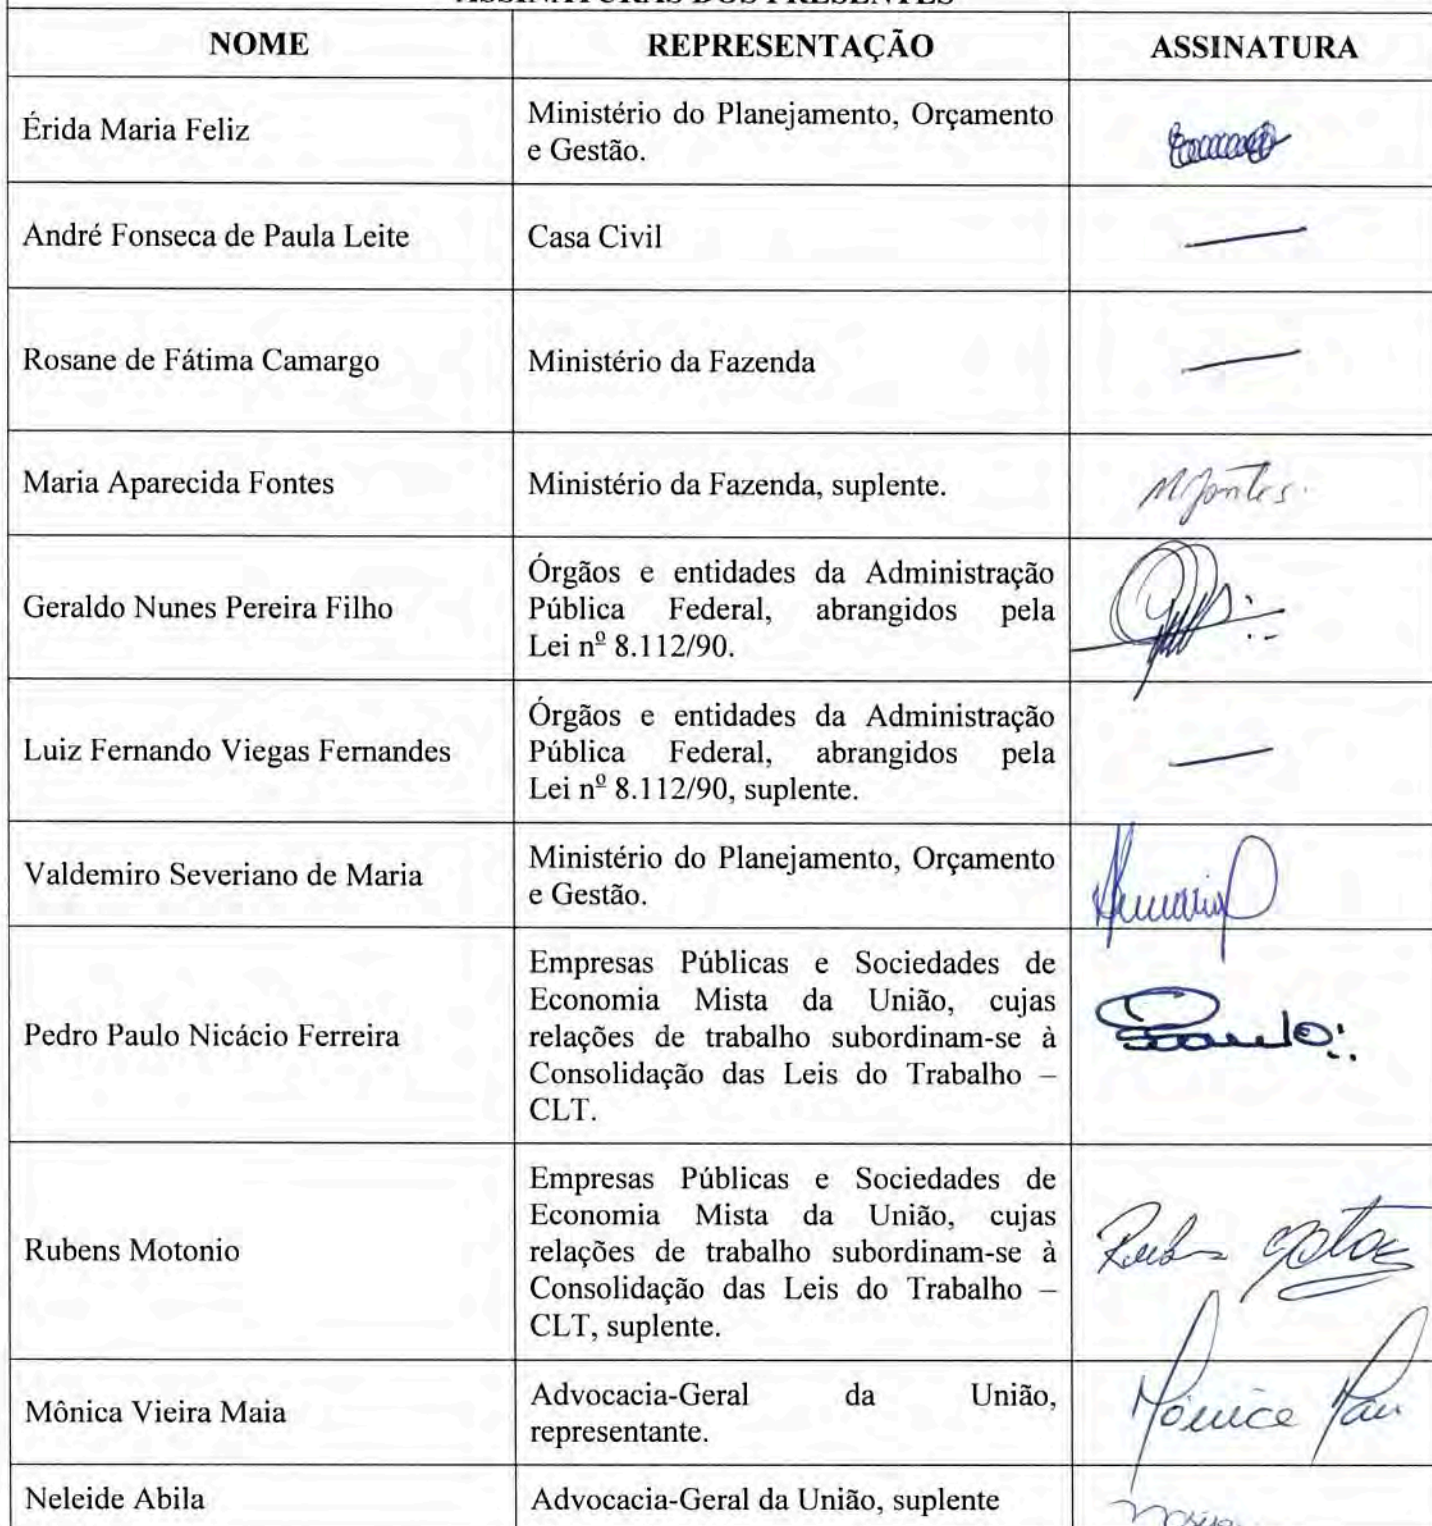 ASSINATURAS DOS PRESENTES
NOME
REPRESENTAÇÃO
ASSINATURA
Érida Maria Feliz
Ministério do Planejamento, Orçamento
e Gestão.
André Fonseca de Paula Leite
Casa Civil
Rosane de Fátima Camargo
Ministério da Fazenda
Maria Aparecida Fontes
Ministério da Fazenda, suplente.
MFontes.
Geraldo Nunes Pereira Filho
Órgãos e entidades da Administração
Pública Federal, abrangidos pela
Lei nº 8.112/90.
Luiz Fernando Viegas Fernandes
Órgãos e entidades da Administração
Pública Federal, abrangidos pela
Lei nº 8.112/90, suplente.
Valdemiro Severiano de Maria
Ministério do Planejamento, Orçamento
e Gestão.
Pedro Paulo Nicácio Ferreira
Empresas Públicas e Sociedades de
Economia Mista da União, cujas
relações de trabalho subordinam-se à
Consolidação das Leis do Trabalho –
CLT.
Rubens Motonio
Empresas Públicas e Sociedades de
Economia Mista da União, cujas
relações de trabalho subordinam-se à
Consolidação das Leis do Trabalho –
CLT, suplente.
Mônica Vieira Maia
Advocacia-Geral da União,
representante.
Mônica
Neleide Abila
Advocacia-Geral da União, suplente